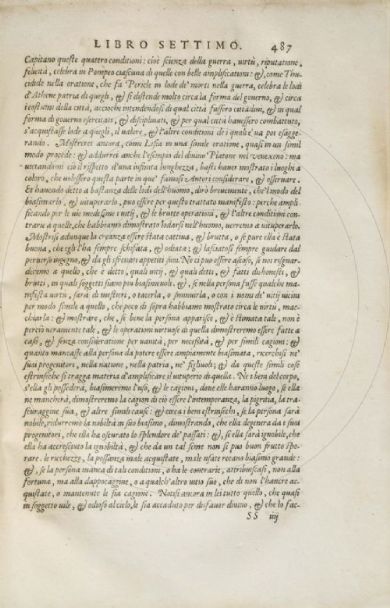 LIBRO SETTIMO. 487
Capitano queste quattro conditioni: cioè scienza della guerra, virtù, riputatione,
felicità, celebra in Pompeo ciascuna di quelle con belle amplificationi: &, come Thu-
cidide nella oratione, che fa Pericle in lode de' morti nella guerra, celebra le lodi
d'Athene patria di quegli, & si distende molto circa la forma del governo, & circa
i costumi della città, accioche intendendosi di qual città fussero cittadini, & in qual
forma di governo esercitati, & disciplinati, & per qual città havessero combattuto,
s'acquistasse lode a quegli, il valore, & l'altre conditioni de i quali e' va poi esagge-
rando. Mostrerei ancora, come Lisia in una simile oratione, quasi in un simil
modo procede: & addurrei anche l'esempio del divino Platone nel
vietandomi ciò il rispetto d'una infinita lunghezza, basti haver mostrato i luoghi a
coloro, che volessero questa parte in que' famosi Autori considerare, & osservare.
Et havendo detto a bastanza delle lodi dell'huomo, dirò brevemente, che'l modo del
biasimerlo, & vituperarlo, può essere per questo trattato manifesto: perche ampli-
ficando por le vie medesime i vitij, & le brutte operationi, & l'altre conditioni con-
trarie a quelle, che habbiamo dimostrato lodarsi nell'huomo, verremo a vituperarlo.
Mostrisi adunque la creanza essere stata cattiva, & brutta, o se pure ella è stata
buona, che egli l'ha sempre schifata, & odiata: & lasciatosi sempre guidar dal
perverso ingegno, & da gli sfrenati appetiti suoi. Ne ci può essere ascoso, se noi rsguar-
deremo a quello, che è detto, quali vitij, & quali detti, & fatti dishonesti, &
brutti, in quali soggetti siano più biasimevoli. &, se nella persona fusse qualche ma-
nifesta virtù, sarà di mestieri, o tacerla, o sminuirla, o con i nomi de' vitij vicini
per modo simile a quello, che poco di sopra habbiamo mostrato circa le virtù, mac-
chiarla: & mostrare, che, se bene la persona apparisce, & è stimata tale, non è
perciò veramente tale, & le operationi virtuose di quella dimostreremo essere fatte a
caso, & senza consideratione per vanità, per necessità, & per simili cagioni: &
quanto mancasse alla persona da potere essere ampiamente biasimata, ricerchisi ne'
suoi progenitori, nella natione, nella patria, ne' figliuoli: & da queste simili cose
estrinseche si tragga materia d'amplificare il vituperio di quella. Ne i beni del corpo,
s'ella gli possederà, biasimeremo l'uso, & le cagioni, dōne elle haranno luogo, se ella
ne mancherà, dimostreremo la cagion di ciò essere l'intemperanza, la pigritia, la tra-
scuraggine sua, & altre simili cause: & circa i beni estrinsechi, se la persona sarà
nobile, ridurremo la nobiltà in suo biasimo, dimostrando, che ella degenera da i suoi
progenitori, che ella ha oscurato lo splendore de' passati: &, se ella sarà ignobile, che
ella ha accresciuto la ignobiltà, & che da un tal seme non si può buon frutto spe-
rare. le ricchezze, la possanza male acquistate, male usate recano biasimo grande:
&, se la persona manca di tali conditioni, o ha le contrarie, attribuiscasi, non alla
fortuna, ma alla dapocaggine, o a qualch'altro vitio suo, che di non l'havere ac-
quistate, o mantenute le sia cagione. Notisi ancora in lei tutto quello, che quasi
in soggetto vile, & odioso al cielo, le sia accaduto per disfavor divino, & che lo fac-
SS iiij